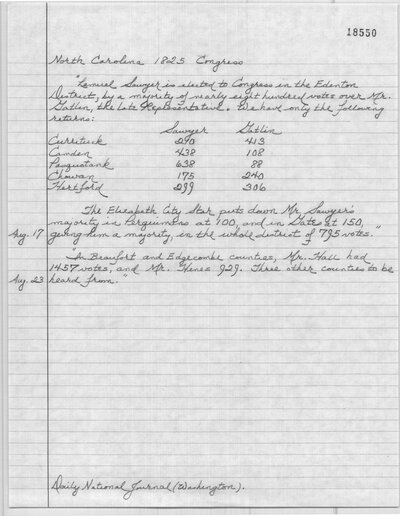 18550
North Carolina 1825 Congress
"Lemuel Sawyer is elected to Congress in the Edenton
District, by a majority of nearly eight hundred votes over Mr.
Gatlin, the late Representative. We have only the following
returns:
Sawyer Gatlin
Currituck 290 413
Camden 438 108
Pasquotank 638 88
Chowan 175 240
Hertford 299 306
The Elizabeth City Star puts down Mr. Sawyer's
majority in Perquimons at 100, and in Gates at 150,
Aug. 17 giving him a majority, in the whole district of 795 votes."
In Beaufort and Edgecombe counties, Mr. Hall had
1457 votes, and Mr. Hines 929. Three other counties to be
Aug. 23 heard from."
Daily National Journal (Washington).